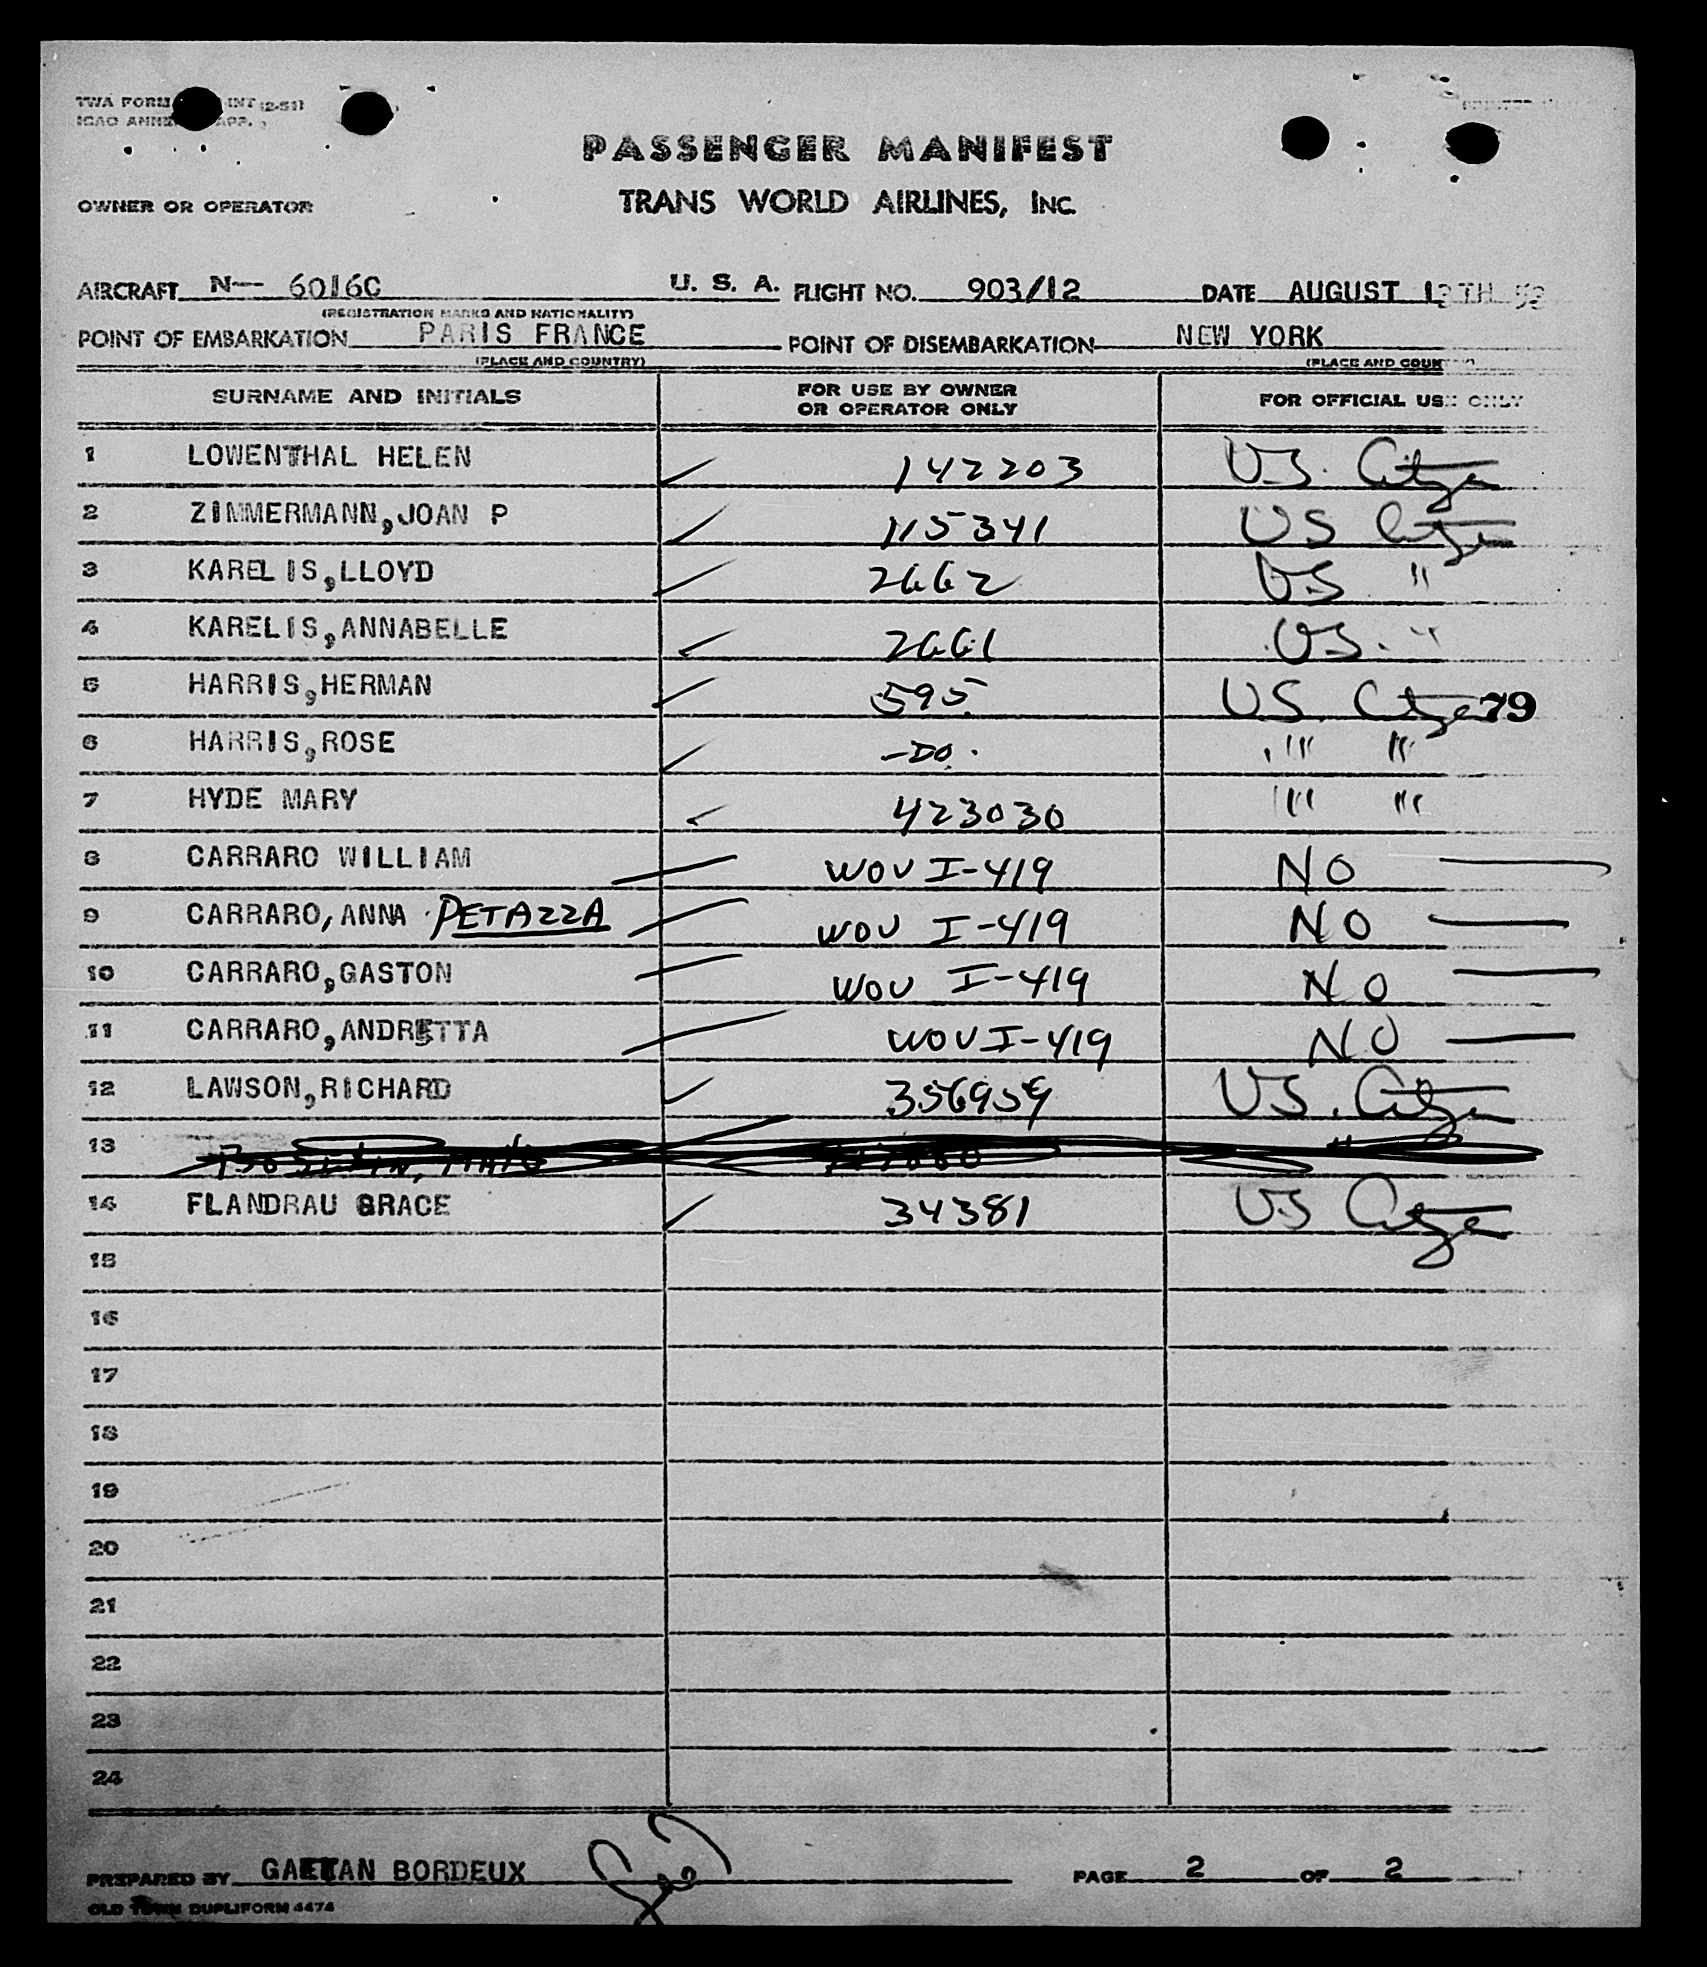 TWA FORM INT (2-51)
ICAO ANNEX APP.
PASSENGER MANIFEST
OWNER OR OPERATOR TRANS WORLD AIRLINES, INC.
AIRCRAFT N-- 6016C U. S. A. FLIGHT NO. 903/12 DATE AUGUST
(REGISTRATION MARKS AND NATIONALITY)
POINT OF EMBARKATION PARIS FRANCE POINT OF DISEMBARKATION NEW YORK
(PLACE AND COUNTRY) (PLACE AND COUNTRY)
SURNAME AND INITIALS FOR USE BY OWNER OR OPERATOR ONLY FOR OFFICIAL USE ONLY
1 LOWENTHAL HELEN 142203 U.S. Citizen
2 ZIMMERMANN,JOAN P 115341 US Citizen
3 KARELIS,LLOYD 2662 US "
4 KARELIS,ANNABELLE 2661 US. "
5 HARRIS,HERMAN 595 US. Citizen 79
6 HARRIS,ROSE -DO. "" "
7 HYDE MARY 423030 "" ""
8 CARRARO WILLIAM WOV I-419 NO
9 CARRARO,ANNA PETAZZA WOV I-419 NO
10 CARRARO,GASTON WOV I-419 NO
11 CARRARO,ANDRETTA WOV I-419 NO
12 LAWSON,RICHARD 356959 US. Citizen
13
14 FLANDRAU GRACE 34381 US Citizen
15
16
17
18
19
20
21
22
23
24
PREPARED BY GAETAN BORDEUX PAGE 2 OF 2
OLD TOWN DUPLIFORM 4474